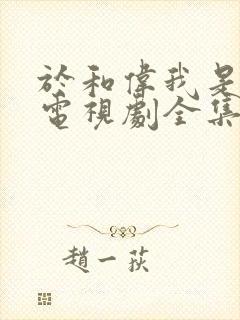 於和偉我是
電視劇全集
趙一荻